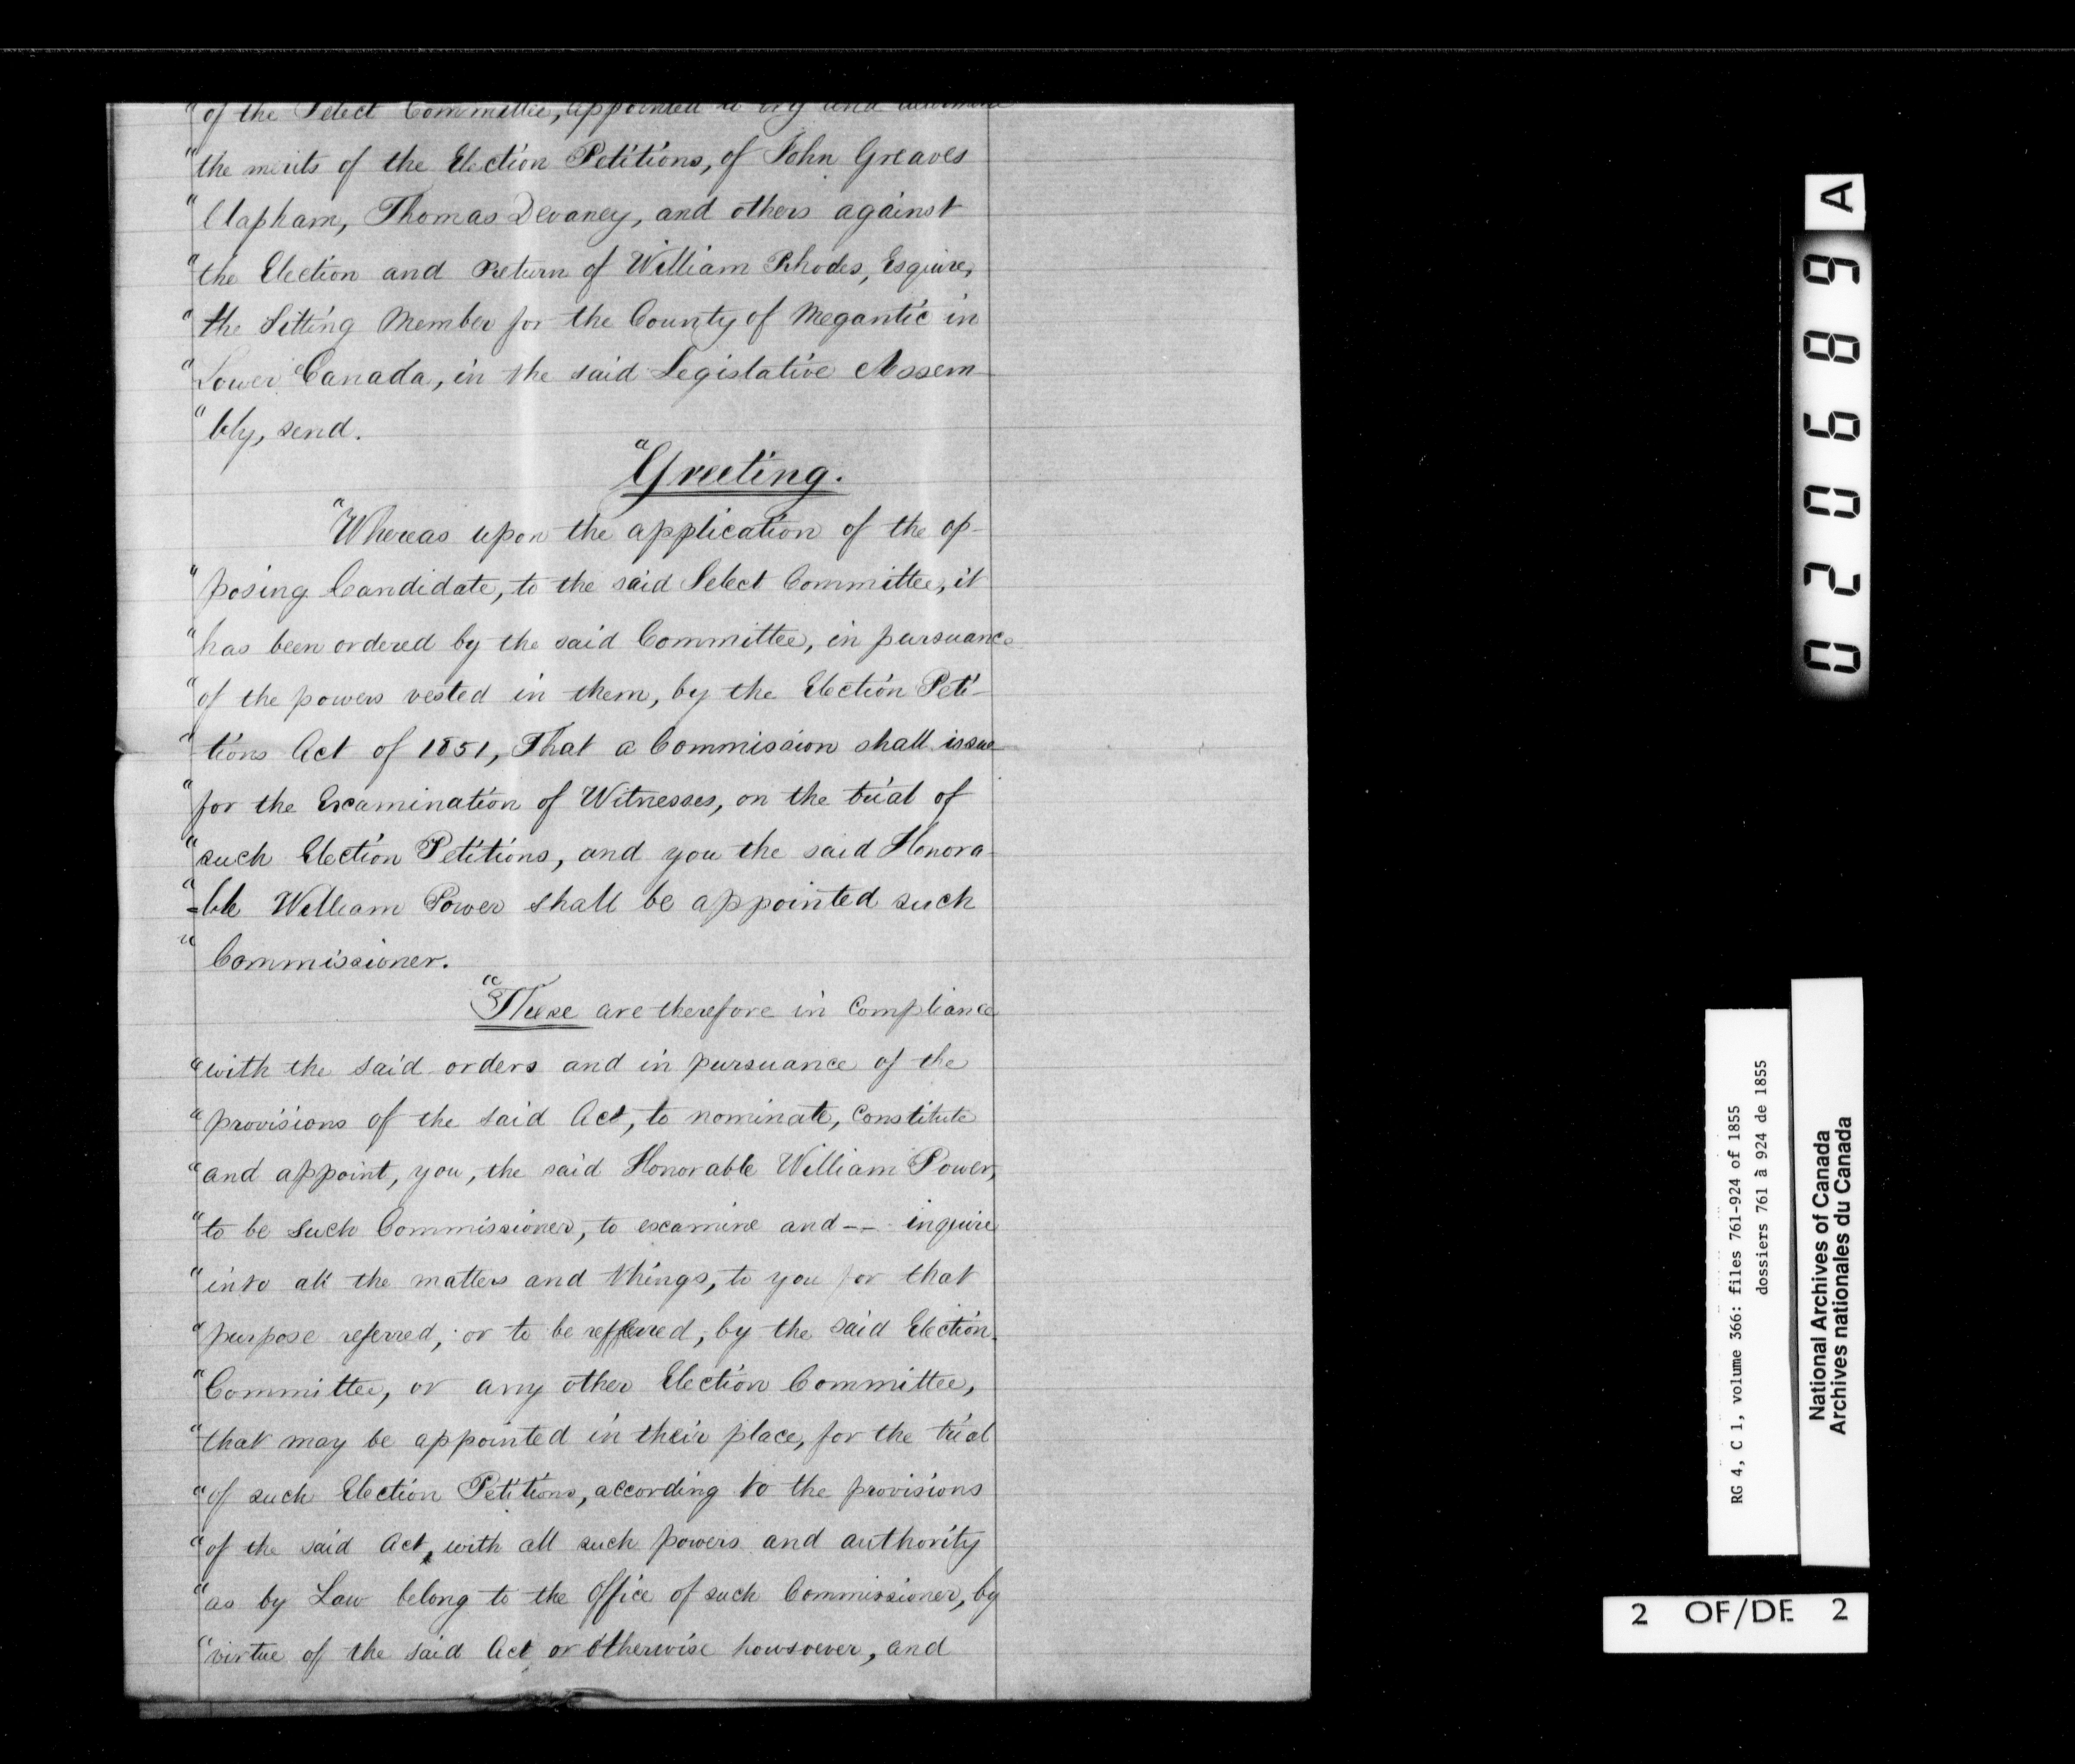 "of the Select Committee, appointed to try and determine
"the merits of the Election Petitions, of John Greaves
"Clapham, Thomas Devaney, and others against
"the Election and Return of William Rhodes, Esquire,
"the Sitting Member for the County of Megantic in
"Lower Canada, in the said Legislative Assem-
"bly, send.
"Greeting.
"Whereas upon the application of the op-
"posing Candidate, to the said Select Committee, it
"has been ordered by the said Committee, in pursuance
"of the powers vested in them, by the Election Peti-
"tions Act of 1851, That a Commission shall issue
"for the Examination of Witnesses, on the trial of
"such Election Petitions, and you the said Honora-
"-ble William Power shall be appointed such
"Commissioner.
"These are therefore in Compliance
"with the said orders and in pursuance of the
"provisions of the said Act, to nominate, Constitute
"and appoint, you, the said Honorable William Power,
"to be such Commissioner, to examine and -- inquire
"into all the matters and things, to you for that
"purpose referred, or to be refferred, by the said Election
"Committee, or any other Election Committee,
"that may be appointed in their place, for the trial
"of such Election Petitions, according to the provisions
"of the said Act, with all such powers and authority
"as by Law belong to the Office of such Commissioner, by
"virtue of the said Act or otherwise howsoever, and
020689 A
RG 4, C 1, volume 366: files 761-924 of 1855
dossiers 761 à 924 de 1855
National Archives of Canada
Archives nationales du Canada
2 OF/DE 2